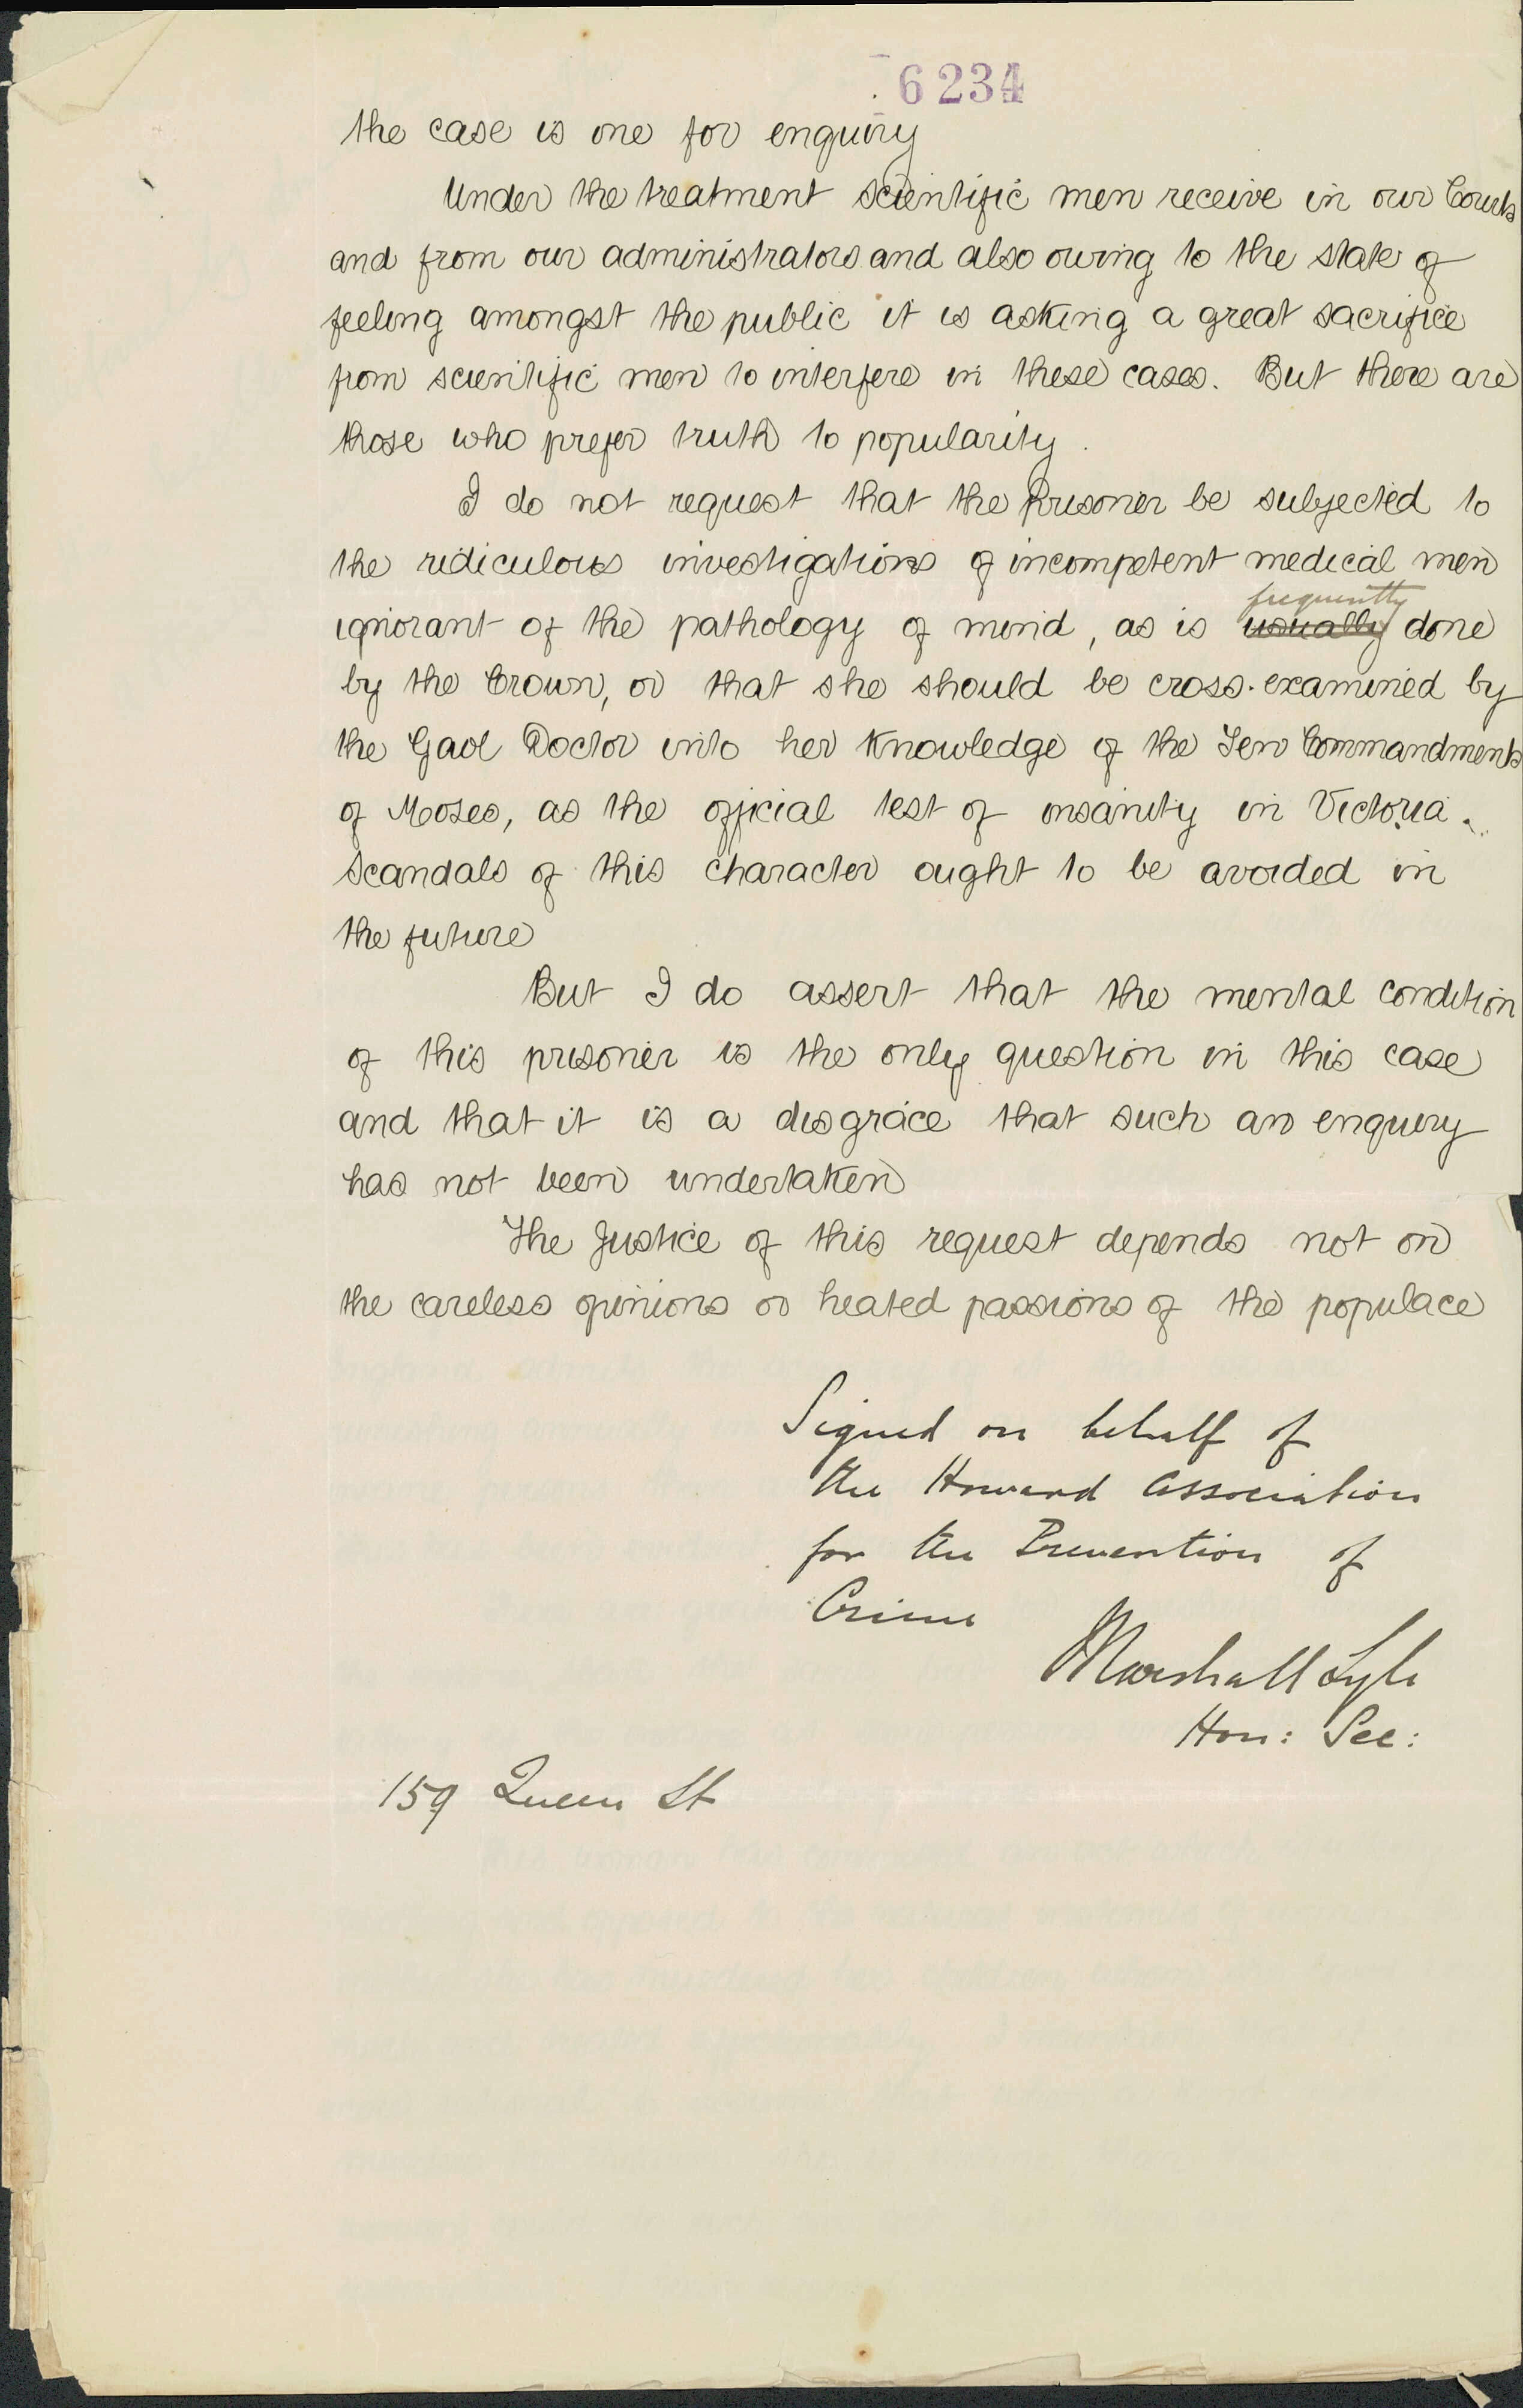 6234
the case is one for enquiry
Under the treatment scientific men receive in our Courts
and from our administrators and also owing to the state of
feeling amongst the public it is asking a great sacrifice
from scientific men to interfere in these cases. But there are
those who prefer truth to popularity.
I do not request that the Prisoner be subjected to
the ridiculous investigations of incompetent medical men
frequently
ignorant of the pathology of mind, as is usually done
by the Crown, or that she should be cross-examined by
the Gaol Doctor into her knowledge of the Ten Commandments
of Moses, as the official test of insanity in Victoria.
Scandals of this character ought to be avoided in
the future
But I do assert that the mental condition
of this prisoner is the only question in this case
and that it is a disgrace that such an enquiry
has not been undertaken
The Justice of this request depends not on
the careless opinions or heated passions of the populace
Signed on behalf of
the Howard Association
for the Prevention of
Crime
Marshall Lyle
Hon: Sec:
159 Queen St